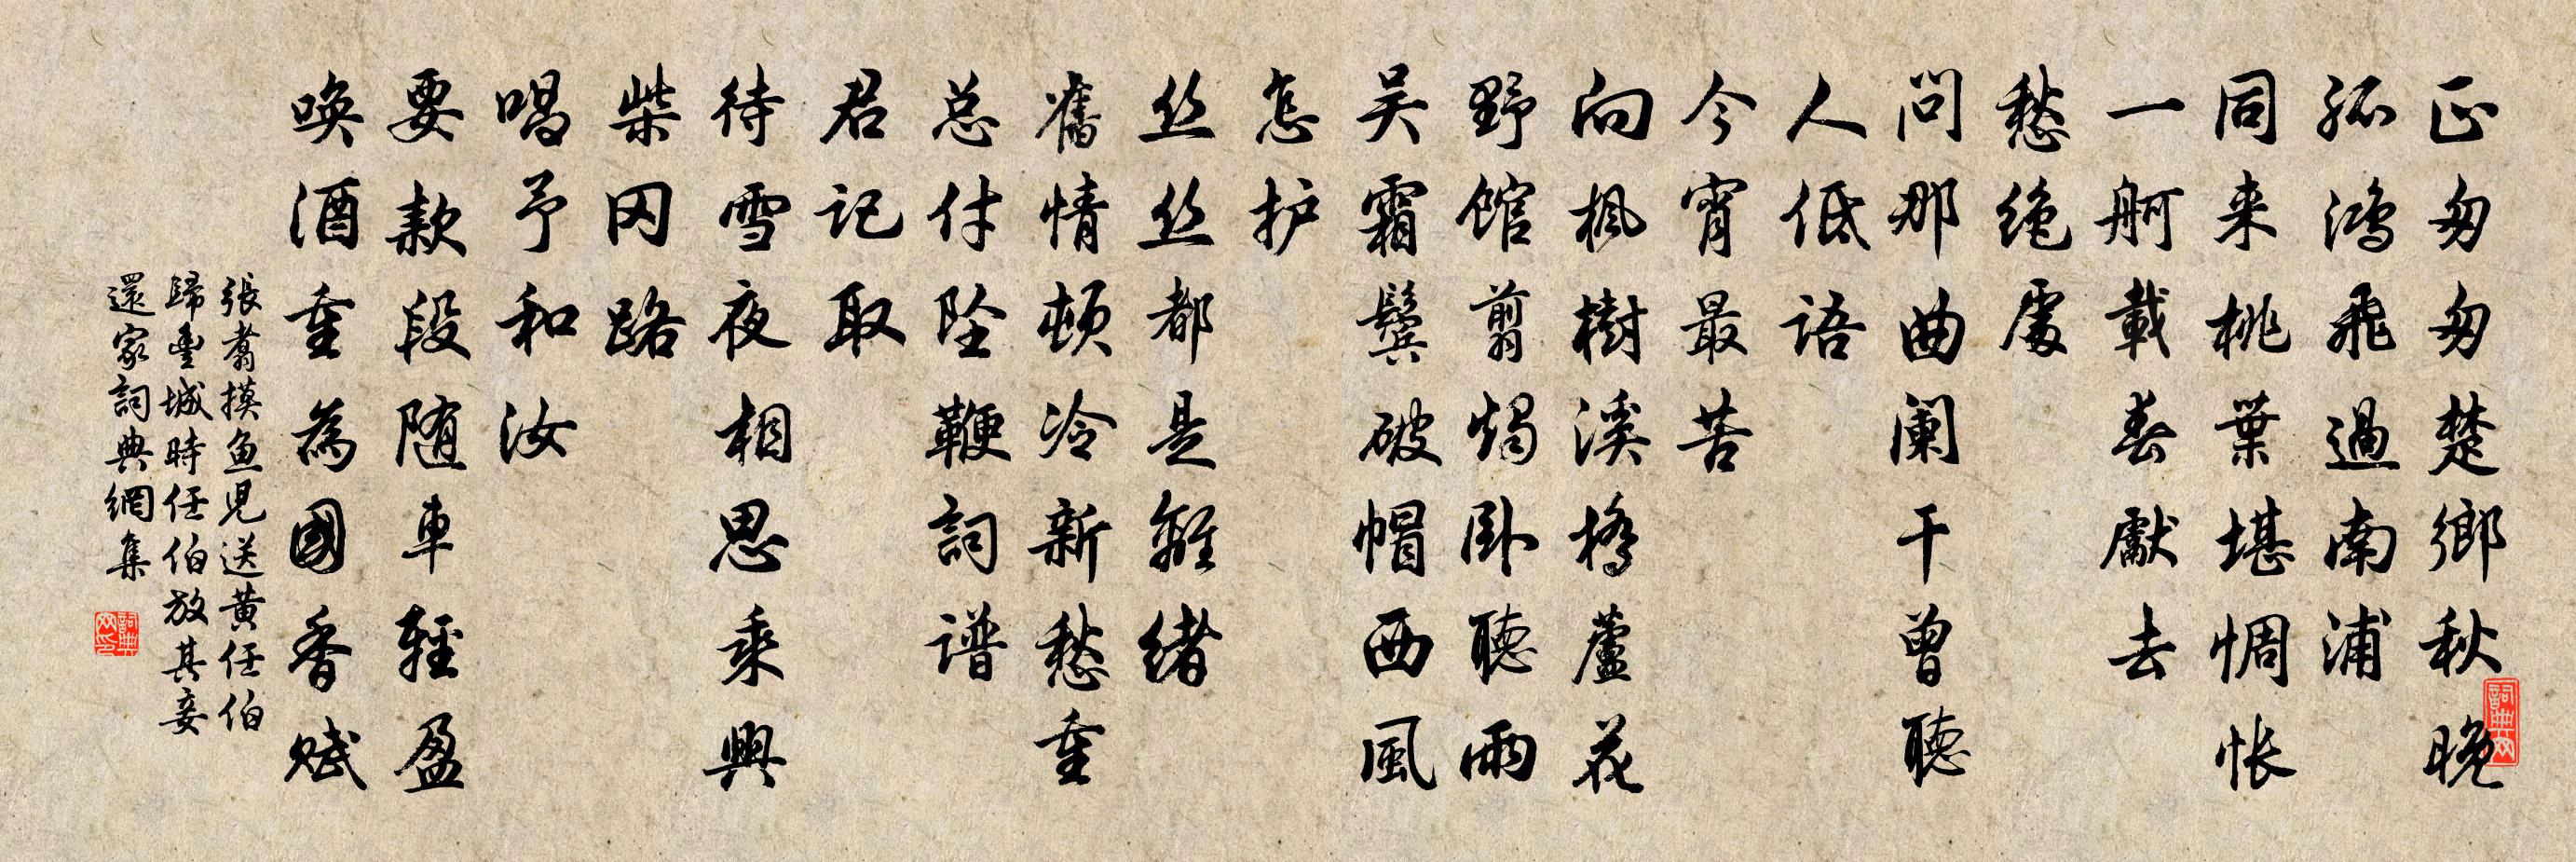 正匆匆楚鄉秋晚
孤鴻飛過南浦
同来桃葉堪惆怅
一舸載春獻去
愁绝處
问那曲阑干曾聴
人低语
今宵最苦
向楓樹溪橋蘆花
野馆剪烛卧聴雨
吴霜鬓破帽西風
怎护
丝丝都是離绪
舊情顿冷新愁重
总付坠鞭詞谱
君记取
待雪夜相思乘興
柴冈路
唱予和汝
要款段随車輕盈
唤酒重為國香赋
張翥摸鱼児送黄任伯
歸豊城時任伯放其妾
還家詞典網集
詞典网
詞典网